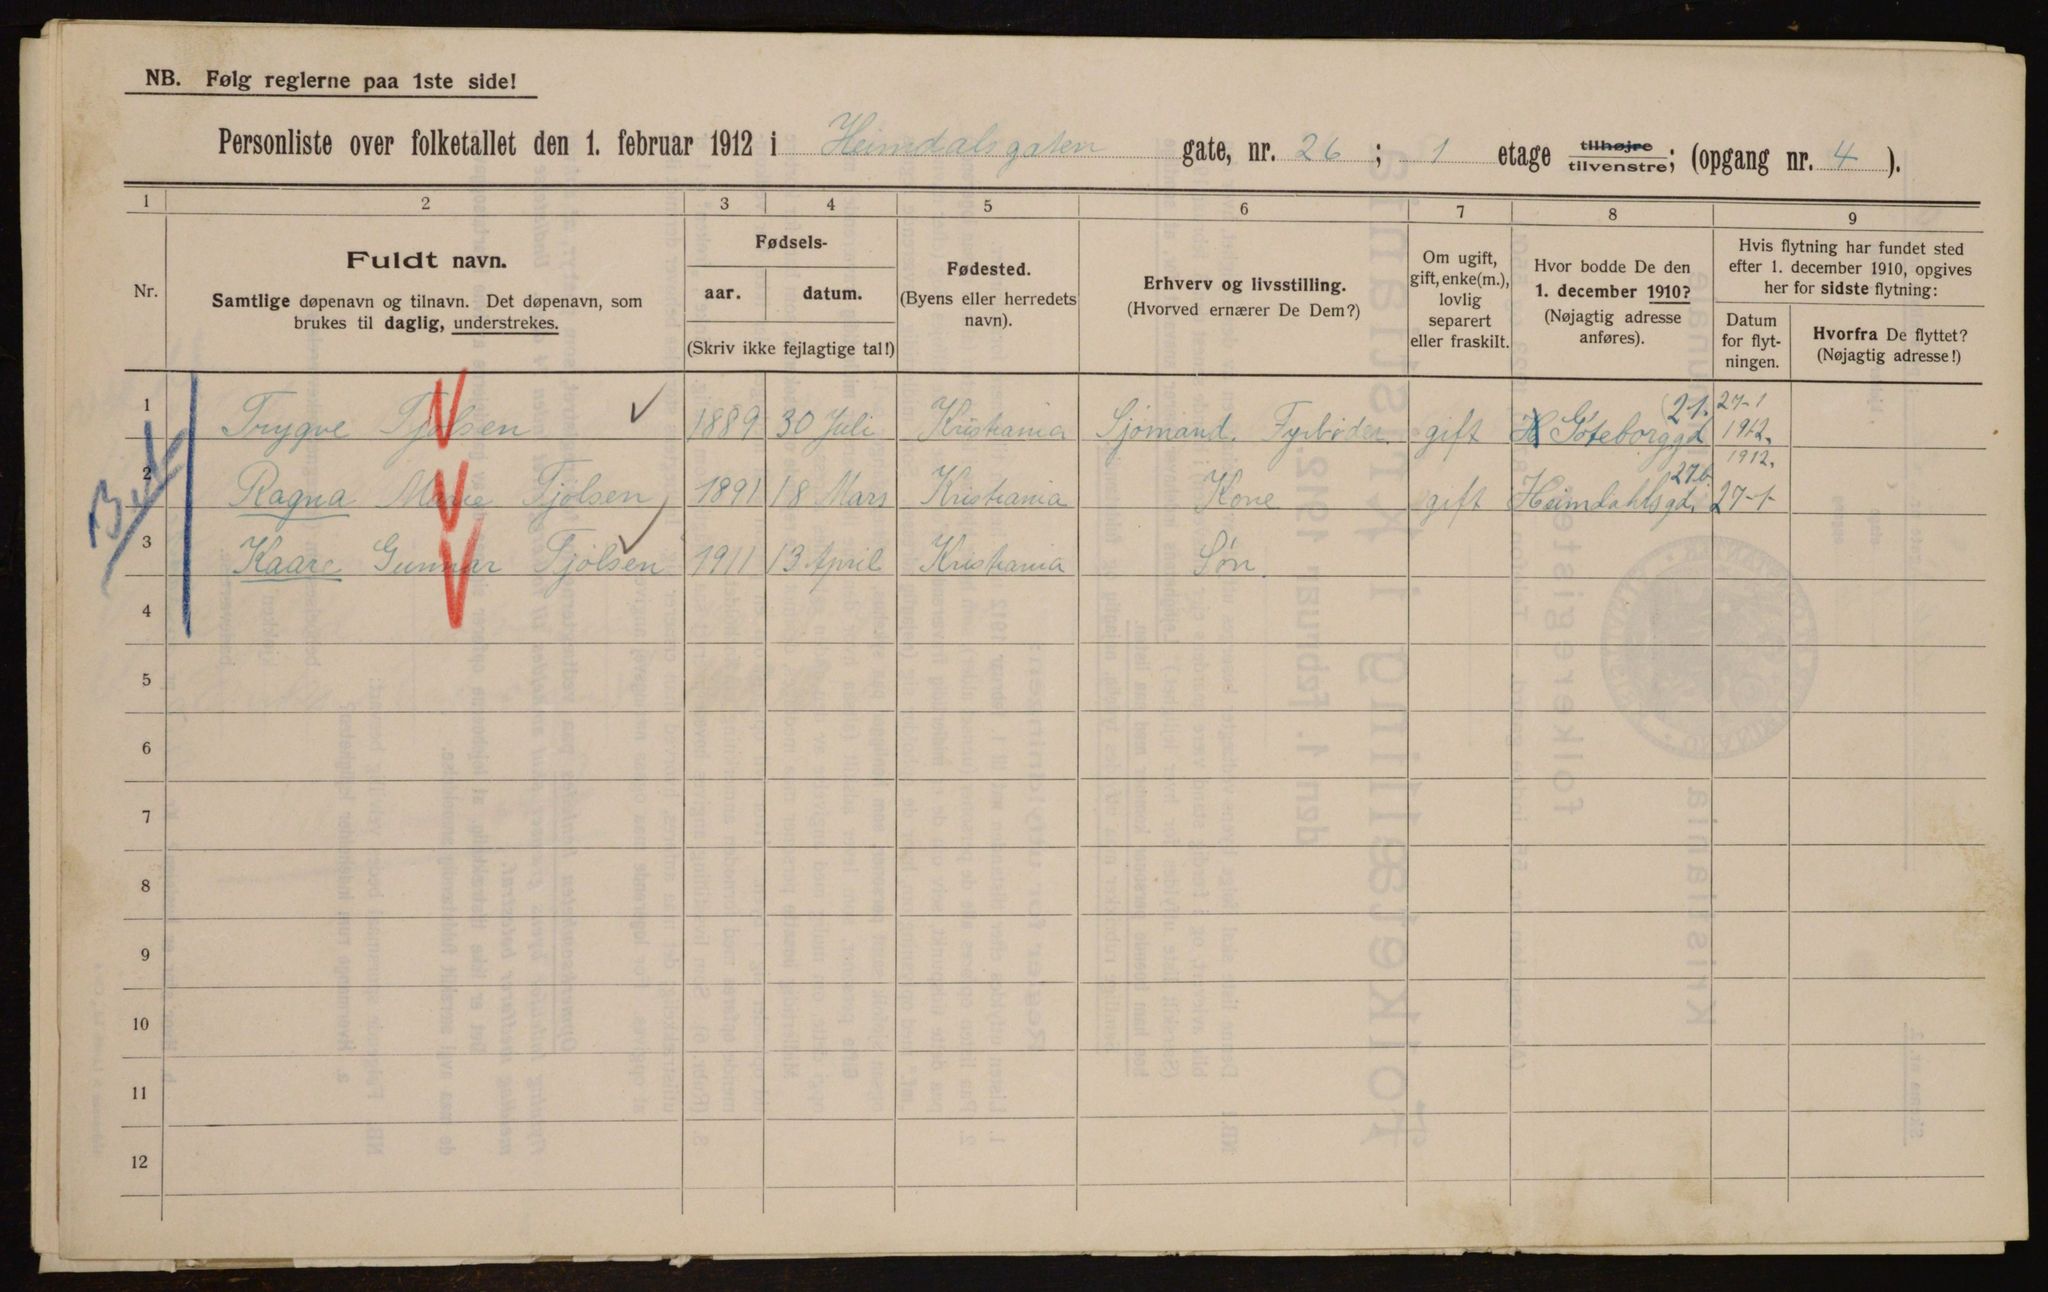 NB. Følg reglerne paa 1ste side!
Personliste over folketallet den 1. februar 1912 i Heimdalsgaten gate, nr. 26; 1 etage tilhøjre tilvenstre; (opgang nr. 4).
1 2 3 4 5 6 7 8 9
Nr.
Fuldt navn.
Samtlige døpenavn og tilnavn. Det døpenavn, som
brukes til daglig, understrekes.
Fødsels-
aar. datum.
(Skriv ikke fejlagtige tal!)
Fødested.
(Byens eller herredets
navn).
Erhverv og livsstilling.
(Hvorved ernærer De Dem?)
Om ugift,
gift, enke(m.),
lovlig
separert
eller fraskilt.
Hvor bodde De den
1. december 1910?
(Nøjagtig adresse
anføres).
Hvis flytning har fundet sted
efter 1. december 1910, opgives
her for sidste flytning:
Datum
for flyt-
ningen.
Hvorfra De flyttet?
(Nøjagtig adresse!)
1 Trygve Tjølsen 1889 30 Juli Kristiania Sjømand. Fyrbøder gift Göteborggd 21. 27-1 1912.
2 Ragna Marie Tjølsen 1891 18 Mars Kristiania Kone gift Heimdahlsgd. 27b. 1912. 27-1-
3 Kaare Gunnar Tjølsen 1911 13 April Kristiania Søn.
4
5
6
7
8
9
10
11
12